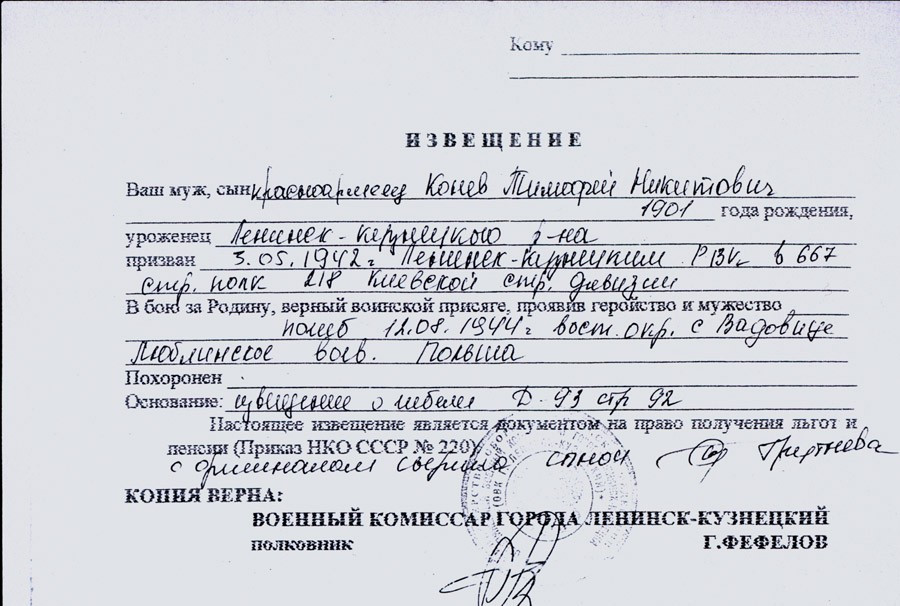 Кому
ИЗВЕЩЕНИЕ
Ваш муж, сын красноармеец Конев Тимофей Никитович
1901 года рождения,
уроженец Ленинск-Кузнецкого р-на
призван 3.05.1942 г Ленинск-Кузнецким РВК в 667
стр. полк 218 Киевской стр. дивизии
В бою за Родину, верный воинской присяге, проявив геройство и мужество
погиб 12.08.1944 г вост. окр. с Вадовице
Люблинское воев. Польша
Похоронен
Основание: извещение о гибели Д-93 стр 92
Настоящее извещение является документом на право получения льгот и
пенсии (Приказ НКО СССР № 220)
с оригиналом сверила
КОПИЯ ВЕРНА:
ВОЕННЫЙ КОМИССАР ГОРОДА ЛЕНИНСК-КУЗНЕЦКИЙ
полковник Г.ФЕФЕЛОВ